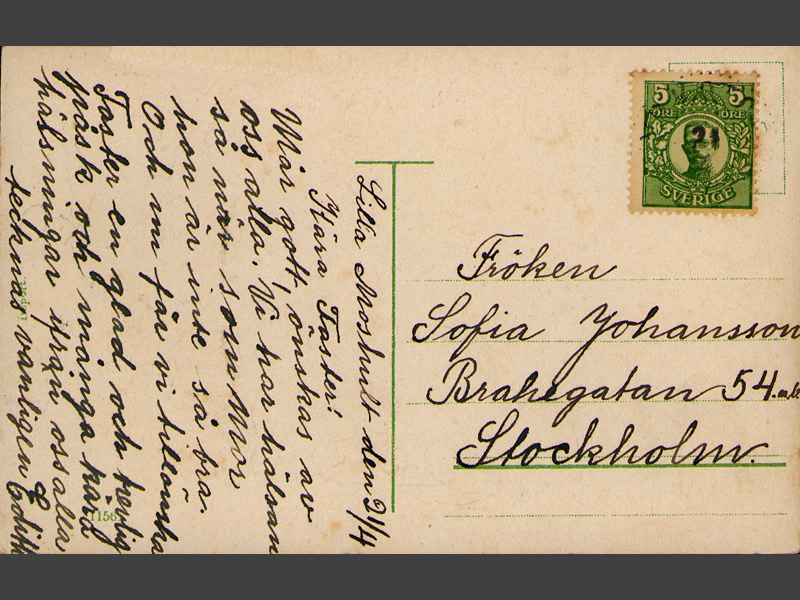 Lilla Moshult den 9/4
Kära Faster!
Mår gott, önskas av
oss alla. Vi har hälsan
så när som Mor
hon är inte så bra.
Och nu får vi tillönska
Faster en glad och härlig
påsk och många kära
hälsningar ifrån oss alla
tecknas vänligen Edith
1156
5 5
ÖRE ÖRE
SVERIGE
21
Fröken
Sofia Johansson
Brahegatan 54.
Stockholm.